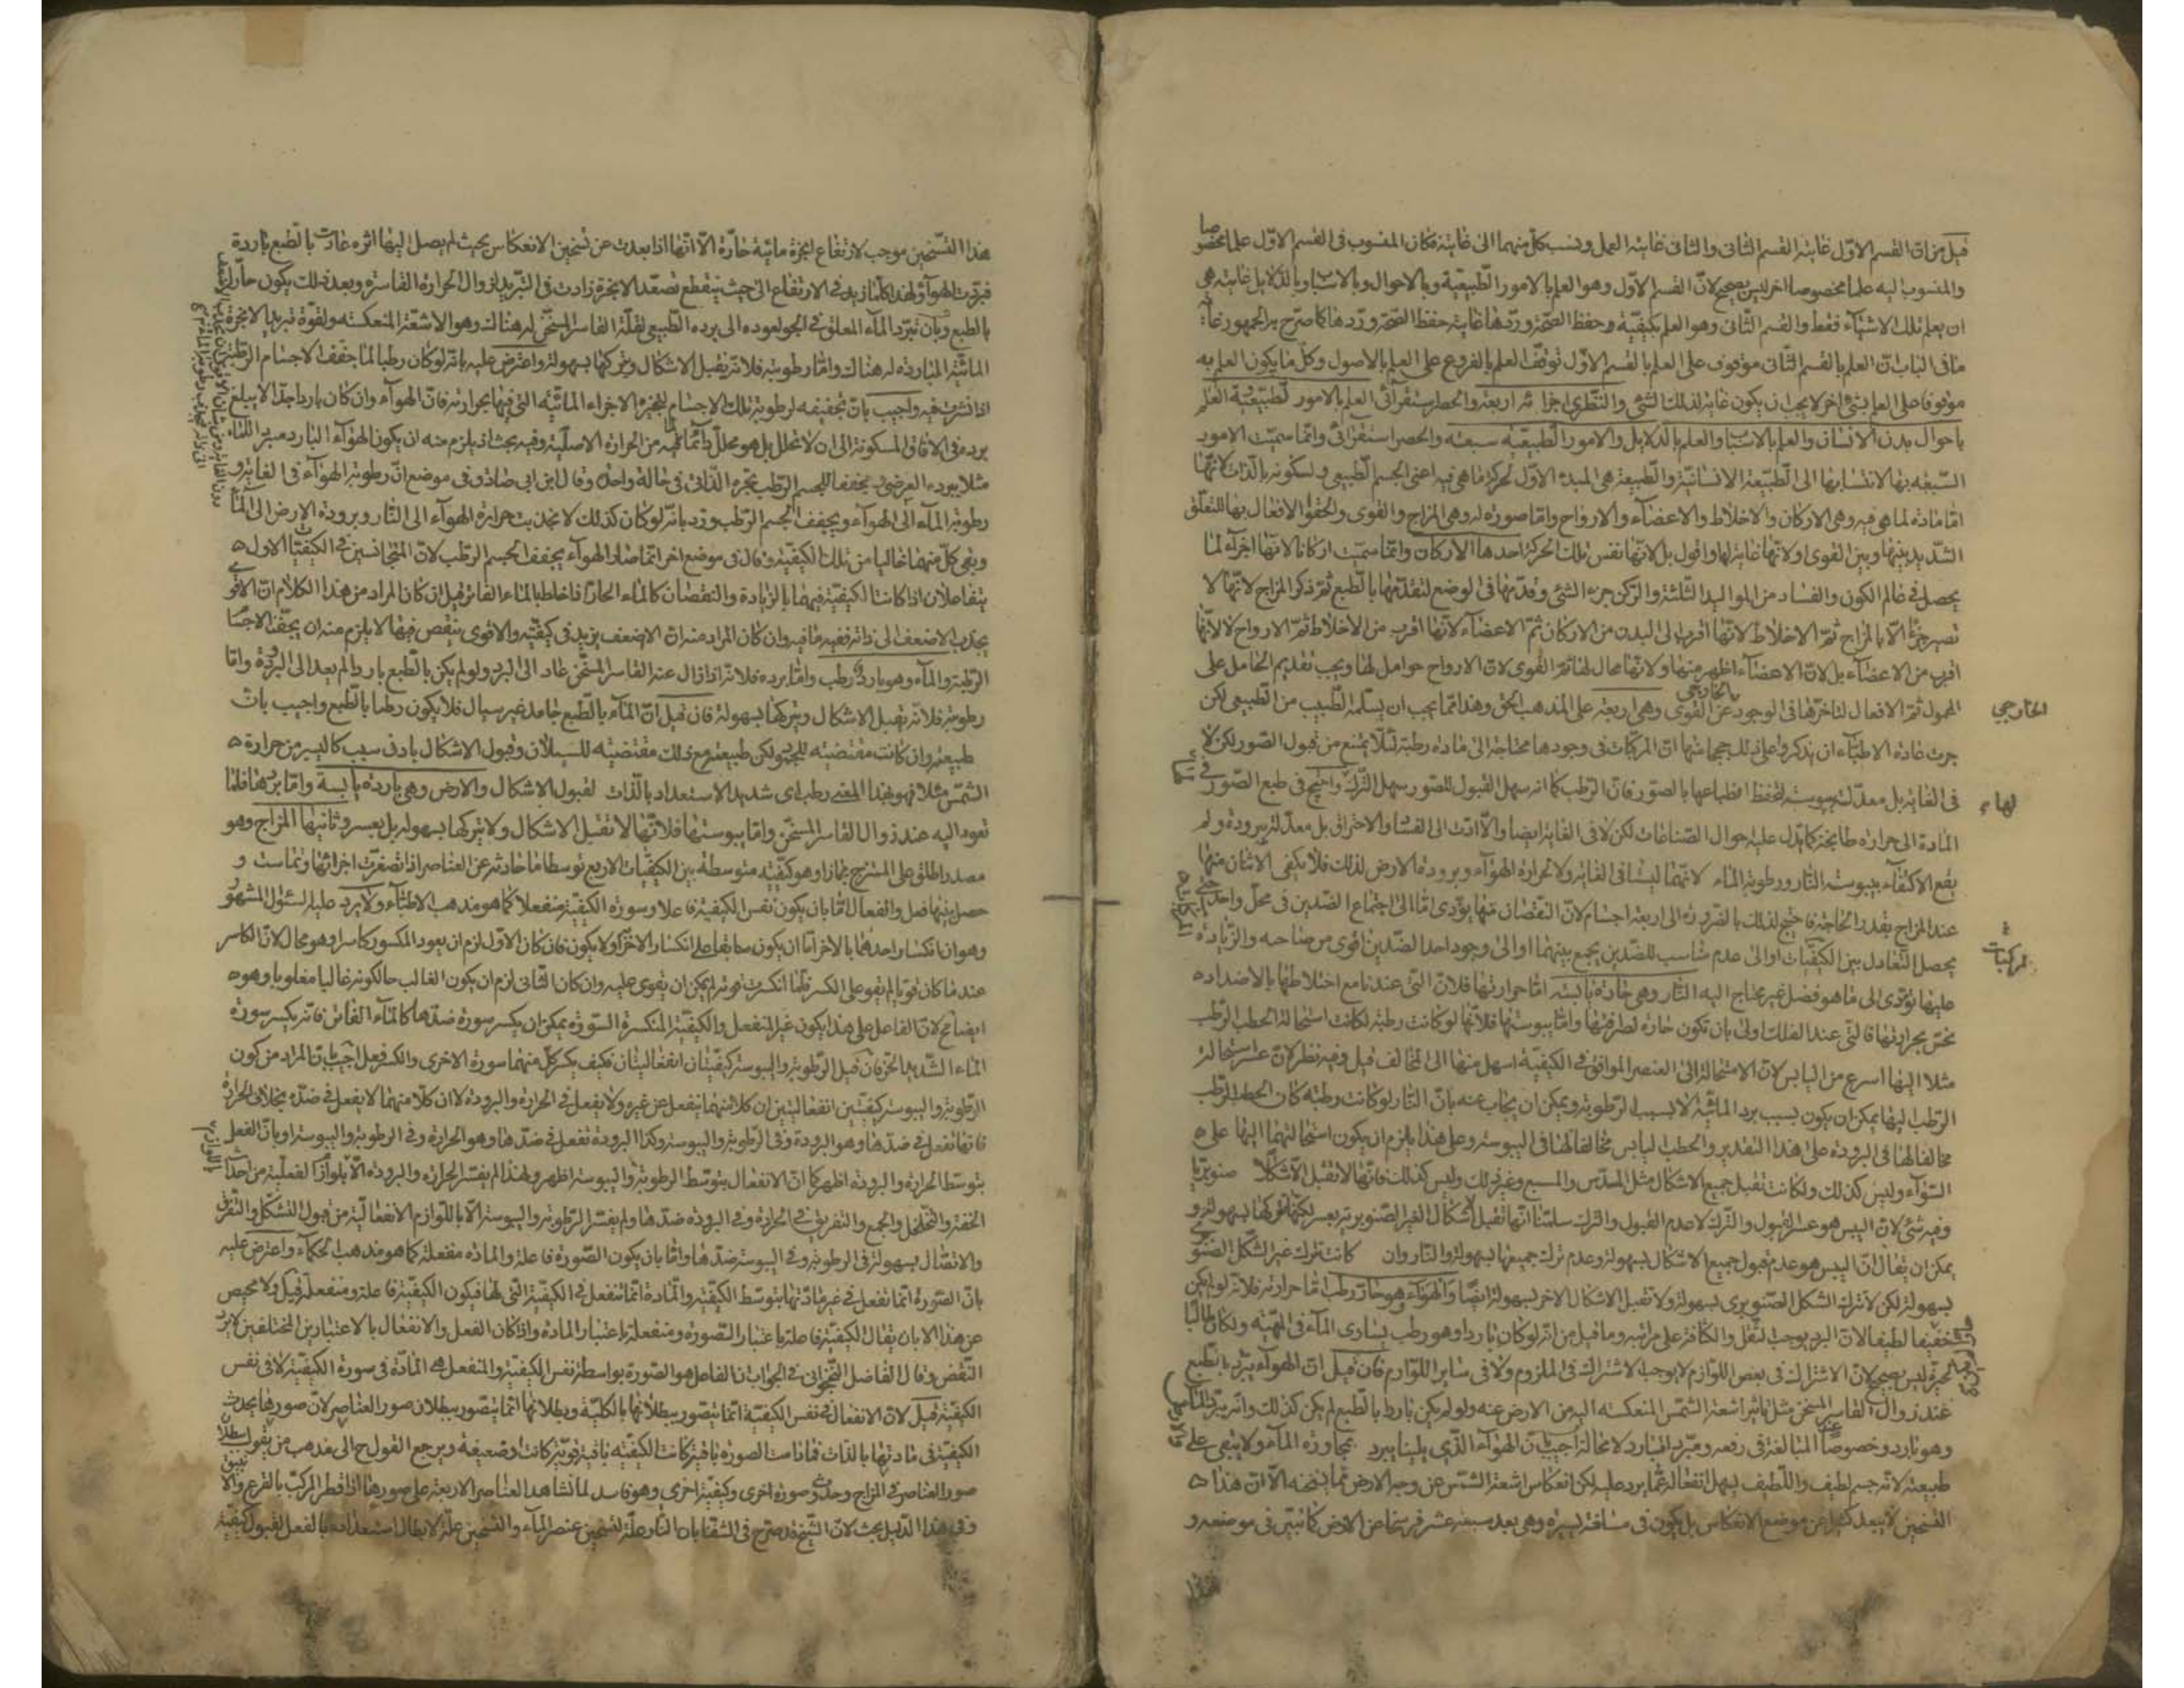 قيل من ان القسم الاول غايته القسم الثانى والثانى غايته العمل ونسب كل منهما الى غايته فكان المنسوب فى القسم الاول علما مخصوصا
والمنسوب اليه علما مخصوصا اخر ليس بصحيح لان القسم الاول وهو العلم بالامور الطبيعية وبالاحوال وبالاسباب وبالدلايل غايته هى
ان يعلم تلك الاشياء فقط والقسم الثانى وهو العلم بكيفية حفظ الصحة وردها غايته حفظ الصحة وردها كما صرح به الجمهور غاية
ما فى الباب ان العلم بالقسم الثانى موقوف على العلم بالقسم الاول توقف العلم بالفروع على العلم بالاصول وكل ما يكون العلم به
موقوفا على العلم بشئ اخر لا يجب ان يكون غاية لذلك الشئ والنظرى اجزاؤه اربعة والحصر استقرائى العلم بالامور الطبيعية العلم
باحوال بدن الانسان والعلم بالاسباب والعلم بالدلايل والامور الطبيعية سبعة والحصر استقرائى وانما سميت الامور
السبعة بها لانتسابها الى الطبيعة الانسانية والطبيعة هى المبدء الاول لحركة ما هى فيه اعنى الجسم الطبيعى ولسكونه بالذات لانها
اما مادة لما هى فيه وهى الاركان والاخلاط والاعضاء والارواح واما صورة له وهى المزاج والقوى والحقوا الافعال بها للتعلق
الشديد بينها وبين القوى او لانها غاية لها واقول بل لانها نفس تلك الحركة احدها الاركان وانما سميت اركانا لانها اجزاء لما
يحصل فى عالم الكون والفساد من المواليد الثلثة والركن جزء الشئ وقدمها فى الوضع لتقدمها بالطبع ثم ذكر المزاج لانها لا
تصير جزءا الا بالمزاج ثم الاخلاط لانها اقرب الى البدن من الاركان ثم الاعضاء لانها اقرب من الاخلاط ثم الارواح لا لانها
اقرب من الاعضاء بل لان الاعضاء اظهر منها ولانها محال لها ثم القوى لان الارواح حوامل لها ويجب تقديم الحامل على
المحمول ثم الافعال لتاخرها فى الوجود عن القوى وهى اربعة على المذهب الحق وهذا انما يجب ان يتسلمه الطبيب من الطبيعى لكن
الخارجى
جرت عادة الاطباء ان يذكروا على ذلك حججا منها ان المركبات فى وجودها محتاجة الى مادة رطبة لئلا يمتنع من قبول الصور لكن لا
فى الغاية بل معدلة بيبوسة لتحفظ انطباعها بالصور فان الرطب كما انه سهل القبول للصور سهل الترك واحتيج فى طبع الصور
لها
المادة الى حرارة طابخة كما تدل عليه احوال الصناعات لكن لا فى الغاية ايضا والا ادت الى الفساد والاحتراق بل معدلة ببرودة ولم
يقع الاكتفاء بيبوسة النار ورطوبة الماء لانهما ليستا فى الغاية ولا بحرارة الهواء وبرودة الارض لذلك فلا يكفى الاثنان منها
عند المزاج بقدر الحاجة فاحتيج لذلك بالضرورة الى اربعة اجسام لان النقصان منها يؤدى اما الى اجتماع الضدين فى محل واحد
يحصل التعادل بين الكيفيات او الى عدم مناسب للضدين يجمع بينهما او الى وجود احد الضدين اقوى من صاحبه والزيادة
المركبات
عليها تؤدى الى ما هو فضل غير محتاج اليه النار وهى حارة يابسة اما حرارتها فلان التى عندنا مع اختلاطها بالاضداد
تحس بحرارتها فالتى عند الفلك اولى بان تكون حارة لصرافتها واما يبوستها فلانها لو كانت رطبة لكانت استحالة الحطب الرطب
مثلا اليها اسرع من اليابس لان الاستحالة الى العنصر الموافق فى الكيفية اسهل منها الى المخالف قيل وفيه نظر لان عسر استحالة
الرطب اليها يمكن ان يكون بسبب برد المائية لا بسبب الرطوبة ويمكن ان يجاب عنه بان النار لو كانت رطبة كان الحطب الرطب
مخالفا لها فى البرودة على هذا التقدير والحطب اليابس مخالفا لها فى اليبوسة وعلى هذا يلزم ان يكون استحالتهما اليها على
السواء وليس كذلك ولكانت تقبل جميع الاشكال مثل المسدس والمسبع وغير ذلك وليس كذلك فانها لا تقبل الا شكلا صنوبريا
وفيه شئ لان اليبس هو عسر القبول والترك لا عدم القبول والترك سلمنا انها تقبل الاشكال الغير الصنوبرية بعسر لكنها تتركها بسهولة و
يمكن ان يقال ان اليبس هو عدم قبول جميع الاشكال بسهولة وعدم ترك جميعها بسهولة والنار وان كانت تترك غير الشكل الصنوبرى
بسهولة لكن لا تترك الشكل الصنوبرى بسهولة ولا تقبل الاشكال الاخر بسهولة ايضا والهواء وهو حار رطب اما حرارته فلانه لو لم يكن
خفيفا لطيفا لان البرد يوجب الثقل والكثافة على مراتبه وما قيل من انه لو كان باردا وهو رطب يساوى الماء فى المهية ولكان طالبا
لحيزه ليس بصحيح لان الاشتراك فى بعض اللوازم لا يوجب الاشتراك فى الملزوم ولا فى ساير اللوازم فان قيل ان الهواء يبرد بالطبع
عند زوال القاسر المسخن مثل تاثير اشعة الشمس المنعكسة اليه من الارض عنه ولو لم يكن باردا بالطبع لم يكن كذلك وانه يبرد الماء
وهو بارد وخصوصا المبالغة فى رفعه ومبرد البارد لا محالة اجيب بان الهواء الذى يلينا يبرد بمجاورة الماء ولا يبقى على
طبيعته لانه جسم لطيف واللطيف يسهل انفعاله عما يرد عليه لكن انعكاس اشعة الشمس عن وجه الارض مما يسخنه الا ان هذا
التسخين لا يبعد كثيرا عن موضع الانعكاس بل يكون فى مسافة يسيرة وهى بعد سبعة عشر فرسخا عن الارض كما تبين فى موضعه و
هذا
هذا التسخين موجب لارتفاع ابخرة مائية حارة الا انها اذا بعدت عن تسخين الانعكاس بحيث لم يصل اليها اثره عادت بالطبع باردة
فبردت الهواء ولهذا كلما زيد فى الارتفاع الى حيث ينقطع تصعد الابخرة زادت فى التبريد لزوال الحرارة القاسرة وبعد ذلك يكون حارا
بالطبع وبان تبرد الماء المعلق فى الجو لعوده الى برده الطبيعى لقلة القاسر المسخن له هنالك وهو الاشعة المنعكسة ولقوة تبريد الابخرة
المائية الباردة له هناك واما رطوبته فلانه يقبل الاشكال ويتركها بسهولة واعترض عليه بانه لو كان رطبا لما جفف الاجسام الرطبة
اذا نشرت فيه واجيب بان تجفيفه لرطوبة تلك الاجسام لتبخيره الاجزاء المائية التى فيها بحرارته فان الهواء وان كان باردا جدا لا يبلغ
برده فى الافاق المسكونة الى ان لا يحلل بل هو محلل دائما لما فيه من الحرارة الاصلية وفيه بحث اذ يلزم منه ان يكون الهواء البارد مبرد الماء
مثلا ببرده العرضى مجففا للجسم الرطب بحره الذاتى فى حالة واحدة وقال ابن ابى صادق فى موضع ان رطوبة الهواء فى الغاية و
رطوبة الماء الى الهواء ويجفف الجسم الرطب ورد بانه لو كان كذلك لانجذبت حرارة الهواء الى النار وبرودة الارض الى الماء
وبقى كل منهما خاليا من تلك الكيفية وقال فى موضع اخر انما صار الهواء يجفف الجسم الرطب لان المتجانسين فى الكيفيات الاول
يتفاعلان اذا كانت الكيفية فيهما بالزيادة والنقصان كالماء الحار اذا خلط بالماء الفاتر قيل ان كان المراد من هذا الكلام ان الاقوى
يجذب الاضعف الى ذاته ففيه ما فيه وان كان المراد منه ان الاضعف يزيد فى كيفيته والاقوى ينقص فيها لا يلزم منه ان يجفف الاجسام
الرطبة والماء وهو بارد رطب واما برده فلانه اذا زال عنه القاسر المسخن عاد الى البرد ولو لم يكن بالطبع باردا لم يعد الى البرودة واما
رطوبته فلانه يقبل الاشكال ويتركها بسهولة فان قيل ان الماء بالطبع جامد غير سيال فلا يكون رطبا بالطبع واجيب بان
طبيعته وان كانت مقتضية للجمود لكن طبيعته مع ذلك مقتضية للسيلان وقبول الاشكال بادنى سبب كاليسير من حرارة
الشمس مثلا فهو بهذا المعنى رطب اى شديد الاستعداد بالذات لقبول الاشكال والارض وهى باردة يابسة واما بردها فلما
تعود اليه عند زوال القاسر المسخن واما يبوستها فلانها لا تقبل الاشكال ولا يتركها بسهولة بل بعسر وثانيها المزاج وهو
مصدر اطلق على الممتزج مجازا وهو كيفية متوسطة بين الكيفيات الاربع توسطا ما حادثة عن العناصر اذا تصغرت اجزائها وتماست و
حصل بينها فعل وانفعال اما بان يكون نفس الكيفية فاعلا وسورة الكيفية منفعلا كما هو مذهب الاطباء ولا يرد عليه السئوال المشهور
وهو ان انكسار احدهما بالاخر اما ان يكون سابقا على انكسار الاخر او لا يكون فان كان الاول لزم ان يعود المكسور كاسرا وهو محال لان الكاسر
عند ما كان قويا لم يقو على الكسر فلما انكسرت قوته لم يمكن ان يقوى عليه وان كان الثانى لزم ان يكون الغالب حال كونه غالبا مغلوبا وهو
ايضا مح لان الفاعل على هذا يكون غير المنفعل والكيفية المنكسرة السورة يمكن ان يكسر سورة ضدها كالماء الفاتر فانه يكسر سورة
الماء الشديد الحر فان قيل الرطوبة واليبوسة كيفيتان انفعاليتان فكيف يكسر كل منهما سورة الاخرى والكسر فعل اجيب بان المراد من كون
الرطوبة واليبوسة كيفيتين انفعاليتين ان كلا منهما ينفعل عن غيره ولا يفعل فى الحرارة والبرودة لا ان كلا منهما لا يفعل فى ضده بخلاف الحرارة
فانها تفعل فى ضدها وهو البرودة وفى الرطوبة واليبوسة وكذا البرودة تفعل فى ضدها وهو الحرارة وفى الرطوبة واليبوسة او بان الفعل
بتوسط الحرارة والبرودة اظهر كما ان الانفعال بتوسط الرطوبة واليبوسة اظهر ولهذا لم يفسر الحرارة والبرودة الا بلوازم الفعلية من احداث
الخفة والتخلخل والجمع والتفريق فى الحرارة وفى البرودة ضدها ولم يفسر الرطوبة واليبوسة الا باللوازم الانفعالية من قبول التشكل والتفرق
والاتصال بسهولة فى الرطوبة وفى اليبوسة ضدها واما بان يكون الصورة فاعلة والمادة منفعلة كما هو مذهب الحكماء واعترض عليه
بان الصورة انما تفعل فى غير مادتها بتوسط الكيفية والمادة انما تنفعل فى الكيفية التى لها فيكون الكيفية فاعلة ومنفعلة قيل ولا محيص
عن هذا الا بان يقال الكيفية فاعلة باعتبار الصورة ومنفعلة باعتبار المادة واذا كان الفعل والانفعال بالاعتبارين المختلفين لا يرد
النقض وقال الفاضل النخجوانى فى الجواب ان الفاعل هو الصورة بواسطة نفس الكيفية والمنفعل هو المادة فى سورة الكيفية لا فى نفس
الكيفية قيل لان الانفعال فى نفس الكيفية انما يتصور ببطلانها بالكلية وبطلانها انما يتصور ببطلان صور العناصر لان صورها يحدث
الكيفية فى مادتها بالذات فما دامت الصورة باقية كانت الكيفية باقية قوية كانت او ضعيفة ويرجع القول ح الى مذهب من يقول ببطلان
صور العناصر فى المزاج وحدوث صورة اخرى وكيفية اخرى وهو فاسد لما نشاهد العناصر الاربعة على صورها اذا قطر المركب بالقرع والا
وفى هذا الدليل بحث لان الشيخ قد صرح فى الشفا بان النار علة لتسخين عنصر الماء والتسخين علة لابطال استعداده بالفعل لقبول كيفية